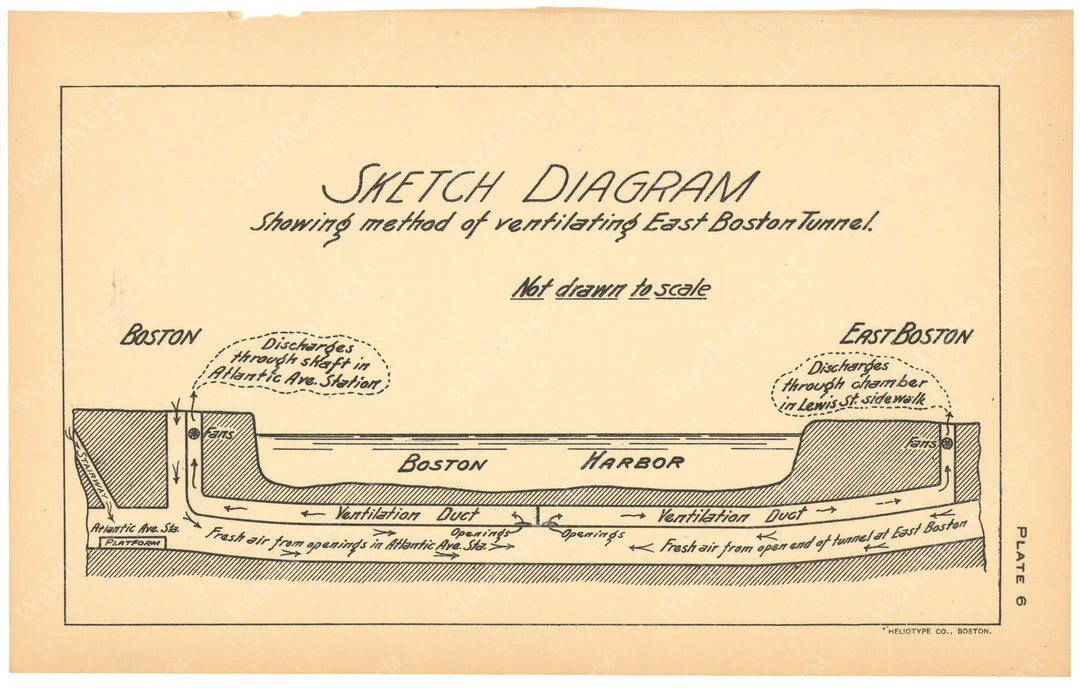 SKETCH DIAGRAM
Showing method of ventilating East Boston Tunnel.
Not drawn to scale
BOSTON
EAST BOSTON
Discharges
through shaft in
Atlantic Ave. Station
Discharges
through chamber
in Lewis St. sidewalk
Fans
Fans
STAIRWAY
BOSTON HARBOR
Ventilation Duct
Ventilation Duct
Openings
Openings
Atlantic Ave. Sta.
PLATFORM
Fresh air from openings in Atlantic Ave. Sta.
Fresh air from open end of tunnel at East Boston
PLATE 6
HELIOTYPE CO., BOSTON.
WardMaps LLC™